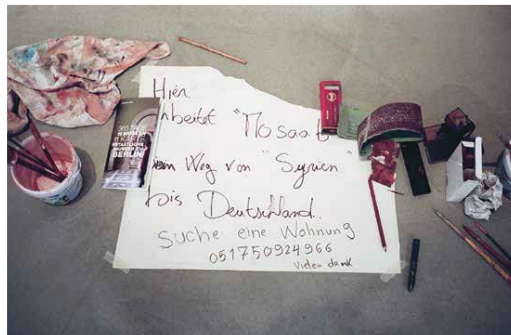 Hier
arbeitet "Mosaat
Weg von "Syrien"
bis Deutschland.
Suche eine Wohnung
051750924966
Vielen dank
BERLIN